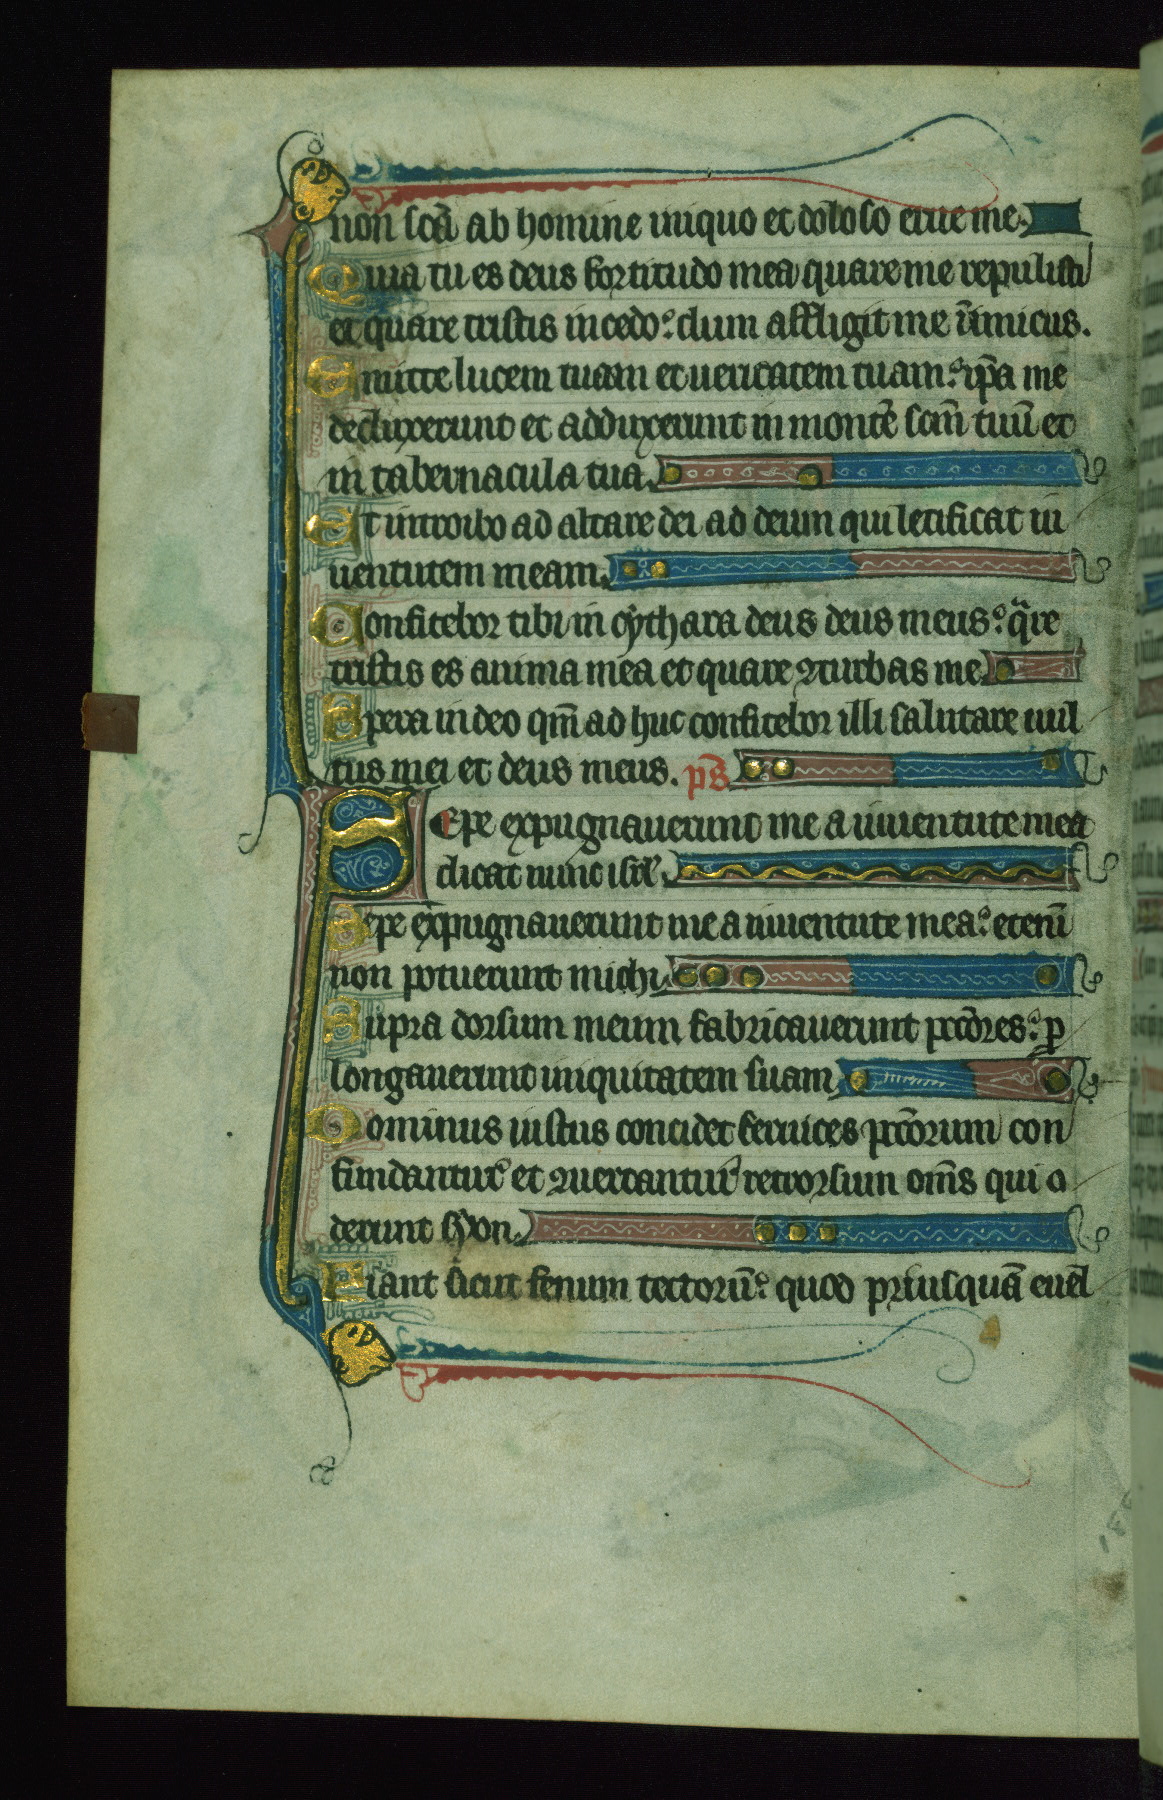 non scā ab homine iniquo et doloso erue me.
Quia tu es deus fortitudo mea quare me repulisti
et quare tristis incedo: dum affligit me īimicus.
Emitte lucem tuam et veritatem tuam: ip̄a me
deduxerunt et adduxerunt in montē scm̄ tuū et
in tabernacula tua.
Et introibo ad altare dei ad deum qui letificat iu
uentutem meam.
Confitebor tibi in cythara deus deus meus: qͣre
tristis es anima mea et quare ꝯturbas me.
Spera in deo qm̄ ad huc confitebor illi salutare uul
tus mei et deus meus. ps̄
Sepe expugnauerunt me a iuuentute mea
dicat nunc isrl̄.
Sepe expugnauerunt me a iuuentute mea: etenī
non potuerunt michi.
Supra dorsum meum fabricauerunt pctōres: ꝓ
longauerunt iniquitatem suam.
Dominus iustus concidet ceruices pctōrum con
fundantur et ꝯuertantur retrorsum om̄s qui o
derunt syon.
Fiant sicut fenum tectorū: quod priusquā euel